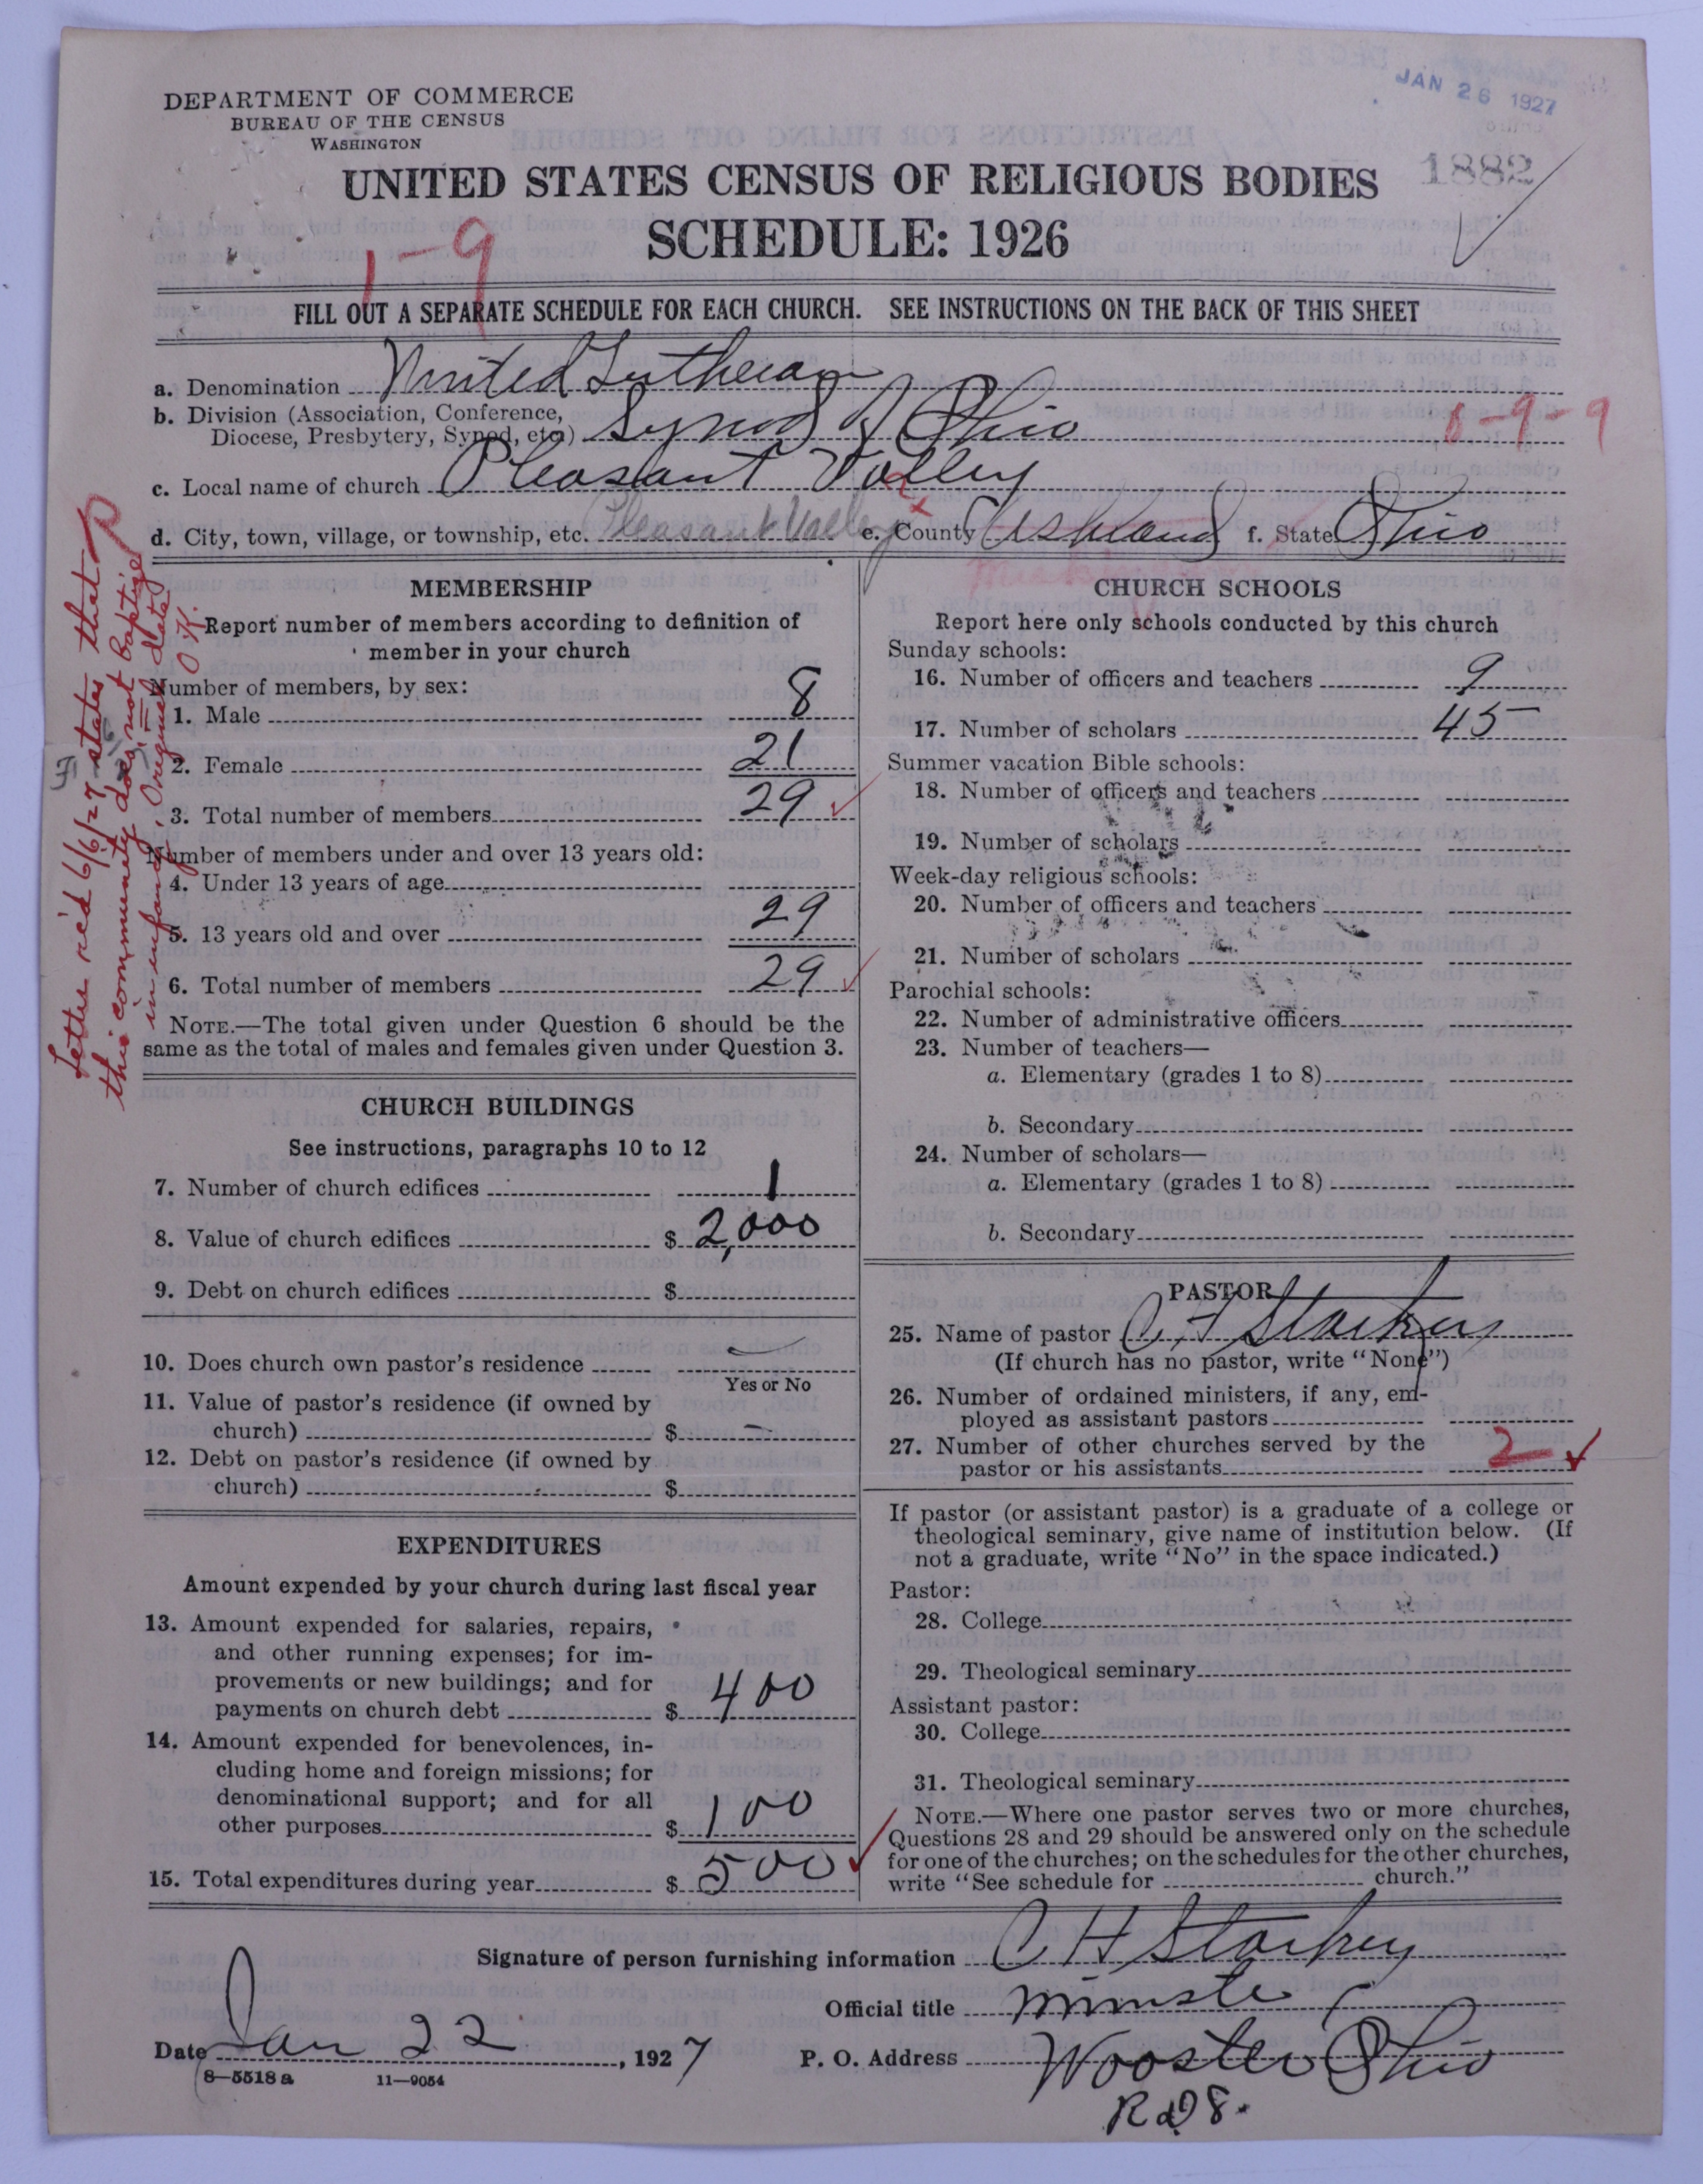 JAN 26 1927
DEPARTMENT OF COMMERCE
BUREAU OF THE CENSUS
WASHINGTON
1882
UNITED STATES CENSUS OF RELIGIOUS BODIES
SCHEDULE: 1926
1-9
FILL OUT A SEPARATE SCHEDULE FOR EACH CHURCH. SEE INSTRUCTIONS ON THE BACK OF THIS SHEET
a. Denomination United Lutheran
b. Division (Association, Conference,
Diocese, Presbytery, Synod, etc.) Synod of Ohio 8-9-9
c. Local name of church Pleasant Valley
d. City, town, village, or township, etc. Pleasant Valley e. County Ashland f. State Ohio
Letter rec'd 6/6/27 states that
this community does not baptize
in infancy. Original data
O.K.
MEMBERSHIP
Report number of members according to definition of
member in your church
Number of members, by sex:
1. Male 8
2. Female 21
3. Total number of members 29
Number of members under and over 13 years old:
4. Under 13 years of age
5. 13 years old and over 29
6. Total number of members 29
NOTE.—The total given under Question 6 should be the
same as the total of males and females given under Question 3.
CHURCH BUILDINGS
See instructions, paragraphs 10 to 12
7. Number of church edifices 1
8. Value of church edifices $ 2,000
9. Debt on church edifices $
10. Does church own pastor's residence —
Yes or No
11. Value of pastor's residence (if owned by
church) $ —
12. Debt on pastor's residence (if owned by
church) $
EXPENDITURES
Amount expended by your church during last fiscal year
13. Amount expended for salaries, repairs,
and other running expenses; for im-
provements or new buildings; and for
payments on church debt $ 400
14. Amount expended for benevolences, in-
cluding home and foreign missions; for
denominational support; and for all
other purposes $ 100
15. Total expenditures during year $ 500
CHURCH SCHOOLS
Report here only schools conducted by this church
Sunday schools:
16. Number of officers and teachers 9
17. Number of scholars 45
Summer vacation Bible schools:
18. Number of officers and teachers
19. Number of scholars
Week-day religious schools:
20. Number of officers and teachers
21. Number of scholars
Parochial schools:
22. Number of administrative officers
23. Number of teachers—
a. Elementary (grades 1 to 8)
b. Secondary
24. Number of scholars—
a. Elementary (grades 1 to 8)
b. Secondary
PASTOR
25. Name of pastor C H Starkey
(If church has no pastor, write "None")
26. Number of ordained ministers, if any, em-
ployed as assistant pastors
27. Number of other churches served by the
pastor or his assistants 2
If pastor (or assistant pastor) is a graduate of a college or
theological seminary, give name of institution below. (If
not a graduate, write "No" in the space indicated.)
Pastor:
28. College
29. Theological seminary
Assistant pastor:
30. College
31. Theological seminary
NOTE.—Where one pastor serves two or more churches,
Questions 28 and 29 should be answered only on the schedule
for one of the churches; on the schedules for the other churches,
write "See schedule for church."
Signature of person furnishing information C H Starkey
Official title Minister
Date Jan 22, 1927 P. O. Address Wooster Ohio
8-5518a 11-9054
R D 8.